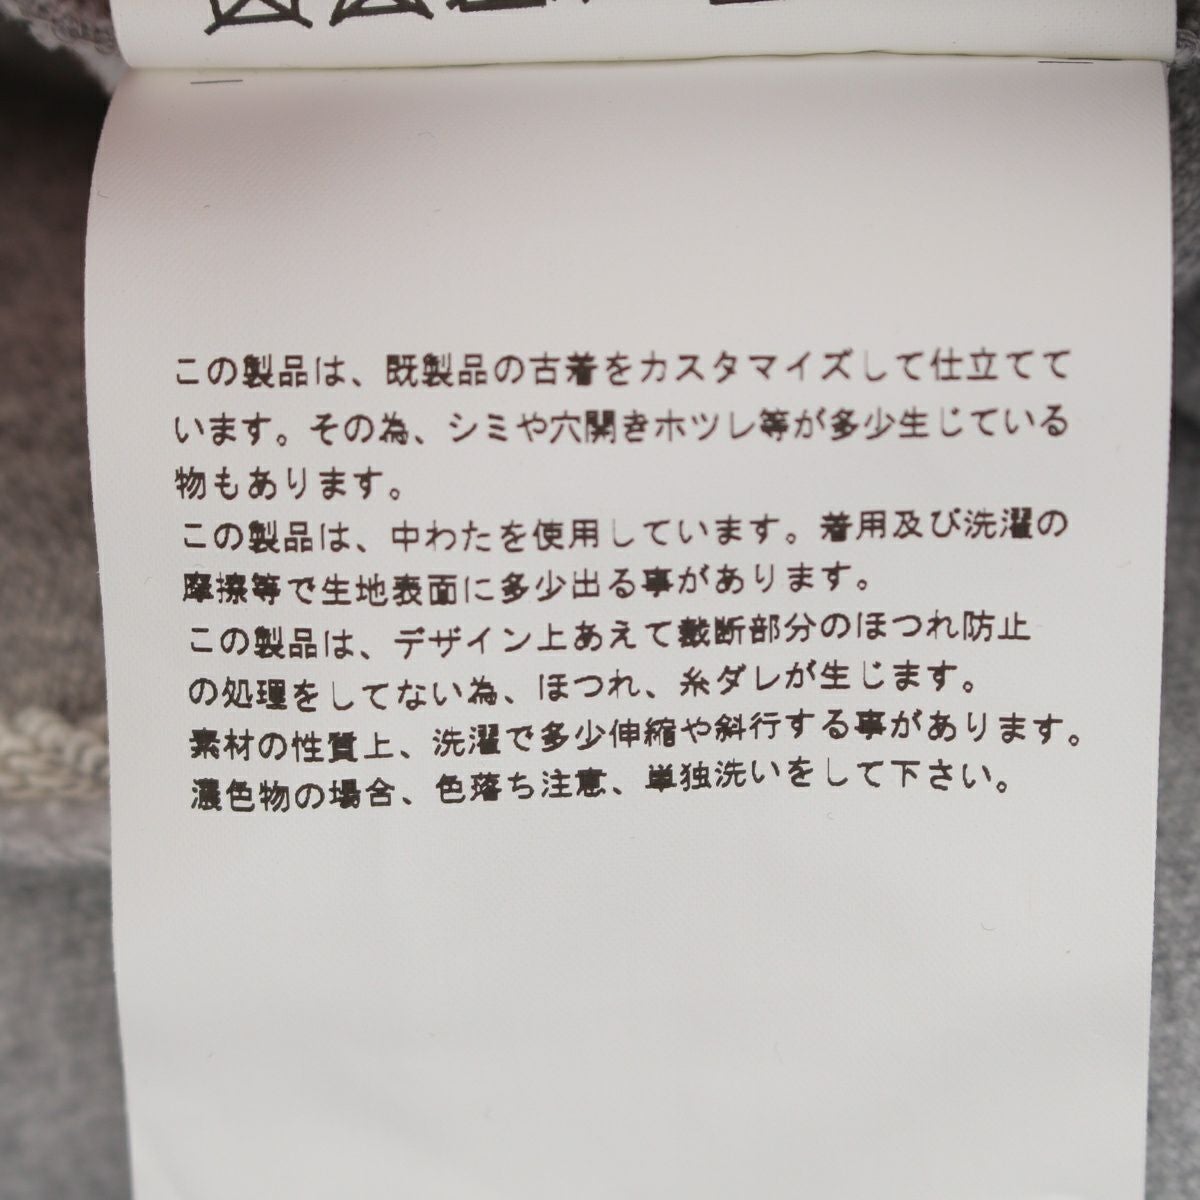 この製品は、既製品の古着をカスタマイズして仕立てて
います。その為、シミや穴開きホツレ等が多少生じている
物もあります。
この製品は、中わたを使用しています。着用及び洗濯の
摩擦等で生地表面に多少出る事があります。
この製品は、デザイン上あえて裁断部分のほつれ防止
の処理をしてない為、ほつれ、糸ダレが生じます。
素材の性質上、洗濯で多少伸縮や斜行する事があります。
濃色物の場合、色落ち注意、単独洗いをして下さい。